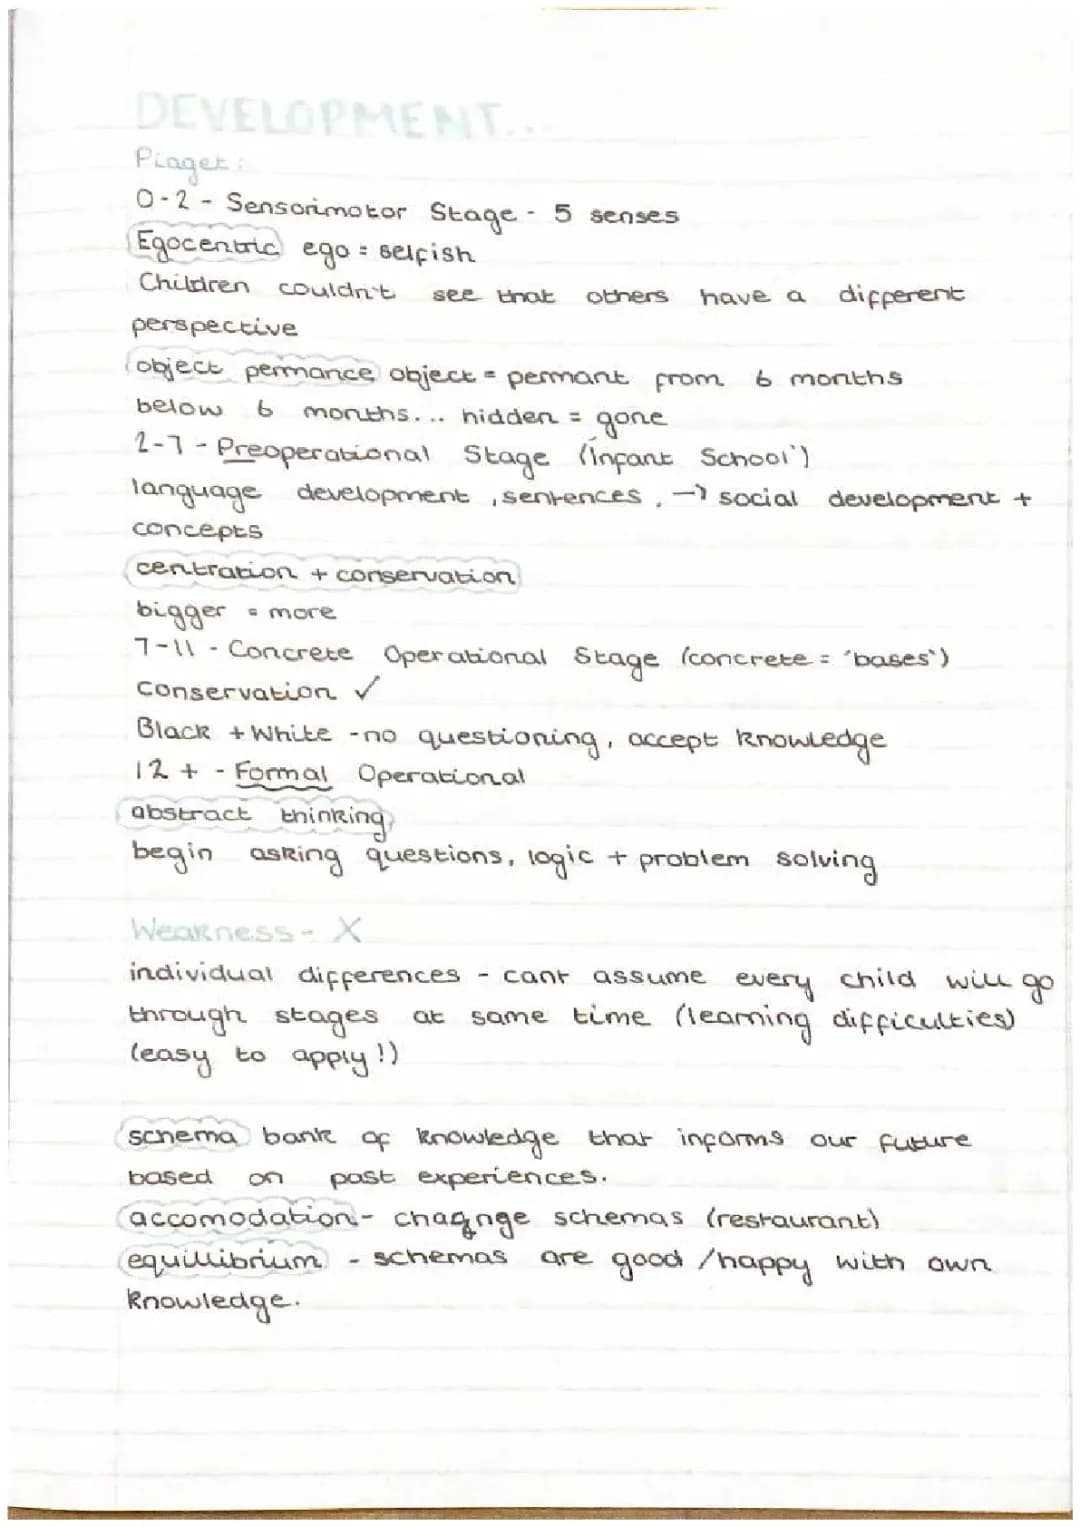 DEVELOPMENT...
Piaget:
0-2 - Sensorimotor Stage - 5 senses
Egocentric ego = selfish
Children couldn't see that others have a different
perspective
object permance object = permant from 6 months
below 6 months... hidden = gone
2-7 - Preoperational Stage ('infant School')
language development, sentences. → social development +
concepts
centration + conservation
bigger = more
7-11 - Concrete Operational Stage (concrete = 'bases')
conservation ✓
Black + White - no questioning, accept knowledge
12 + - Formal Operational
abstract thinking
begin asking questions, logic + problem solving
Weakness - X
individual differences - cant assume every child will go
through stages at same time (learning difficulties)
(easy to apply!)
schema bank of knowledge that informs our future
based on past experiences.
accomodation - chagnge schemas (restaurant)
equillibrium - schemas are good / happy with own
knowledge.